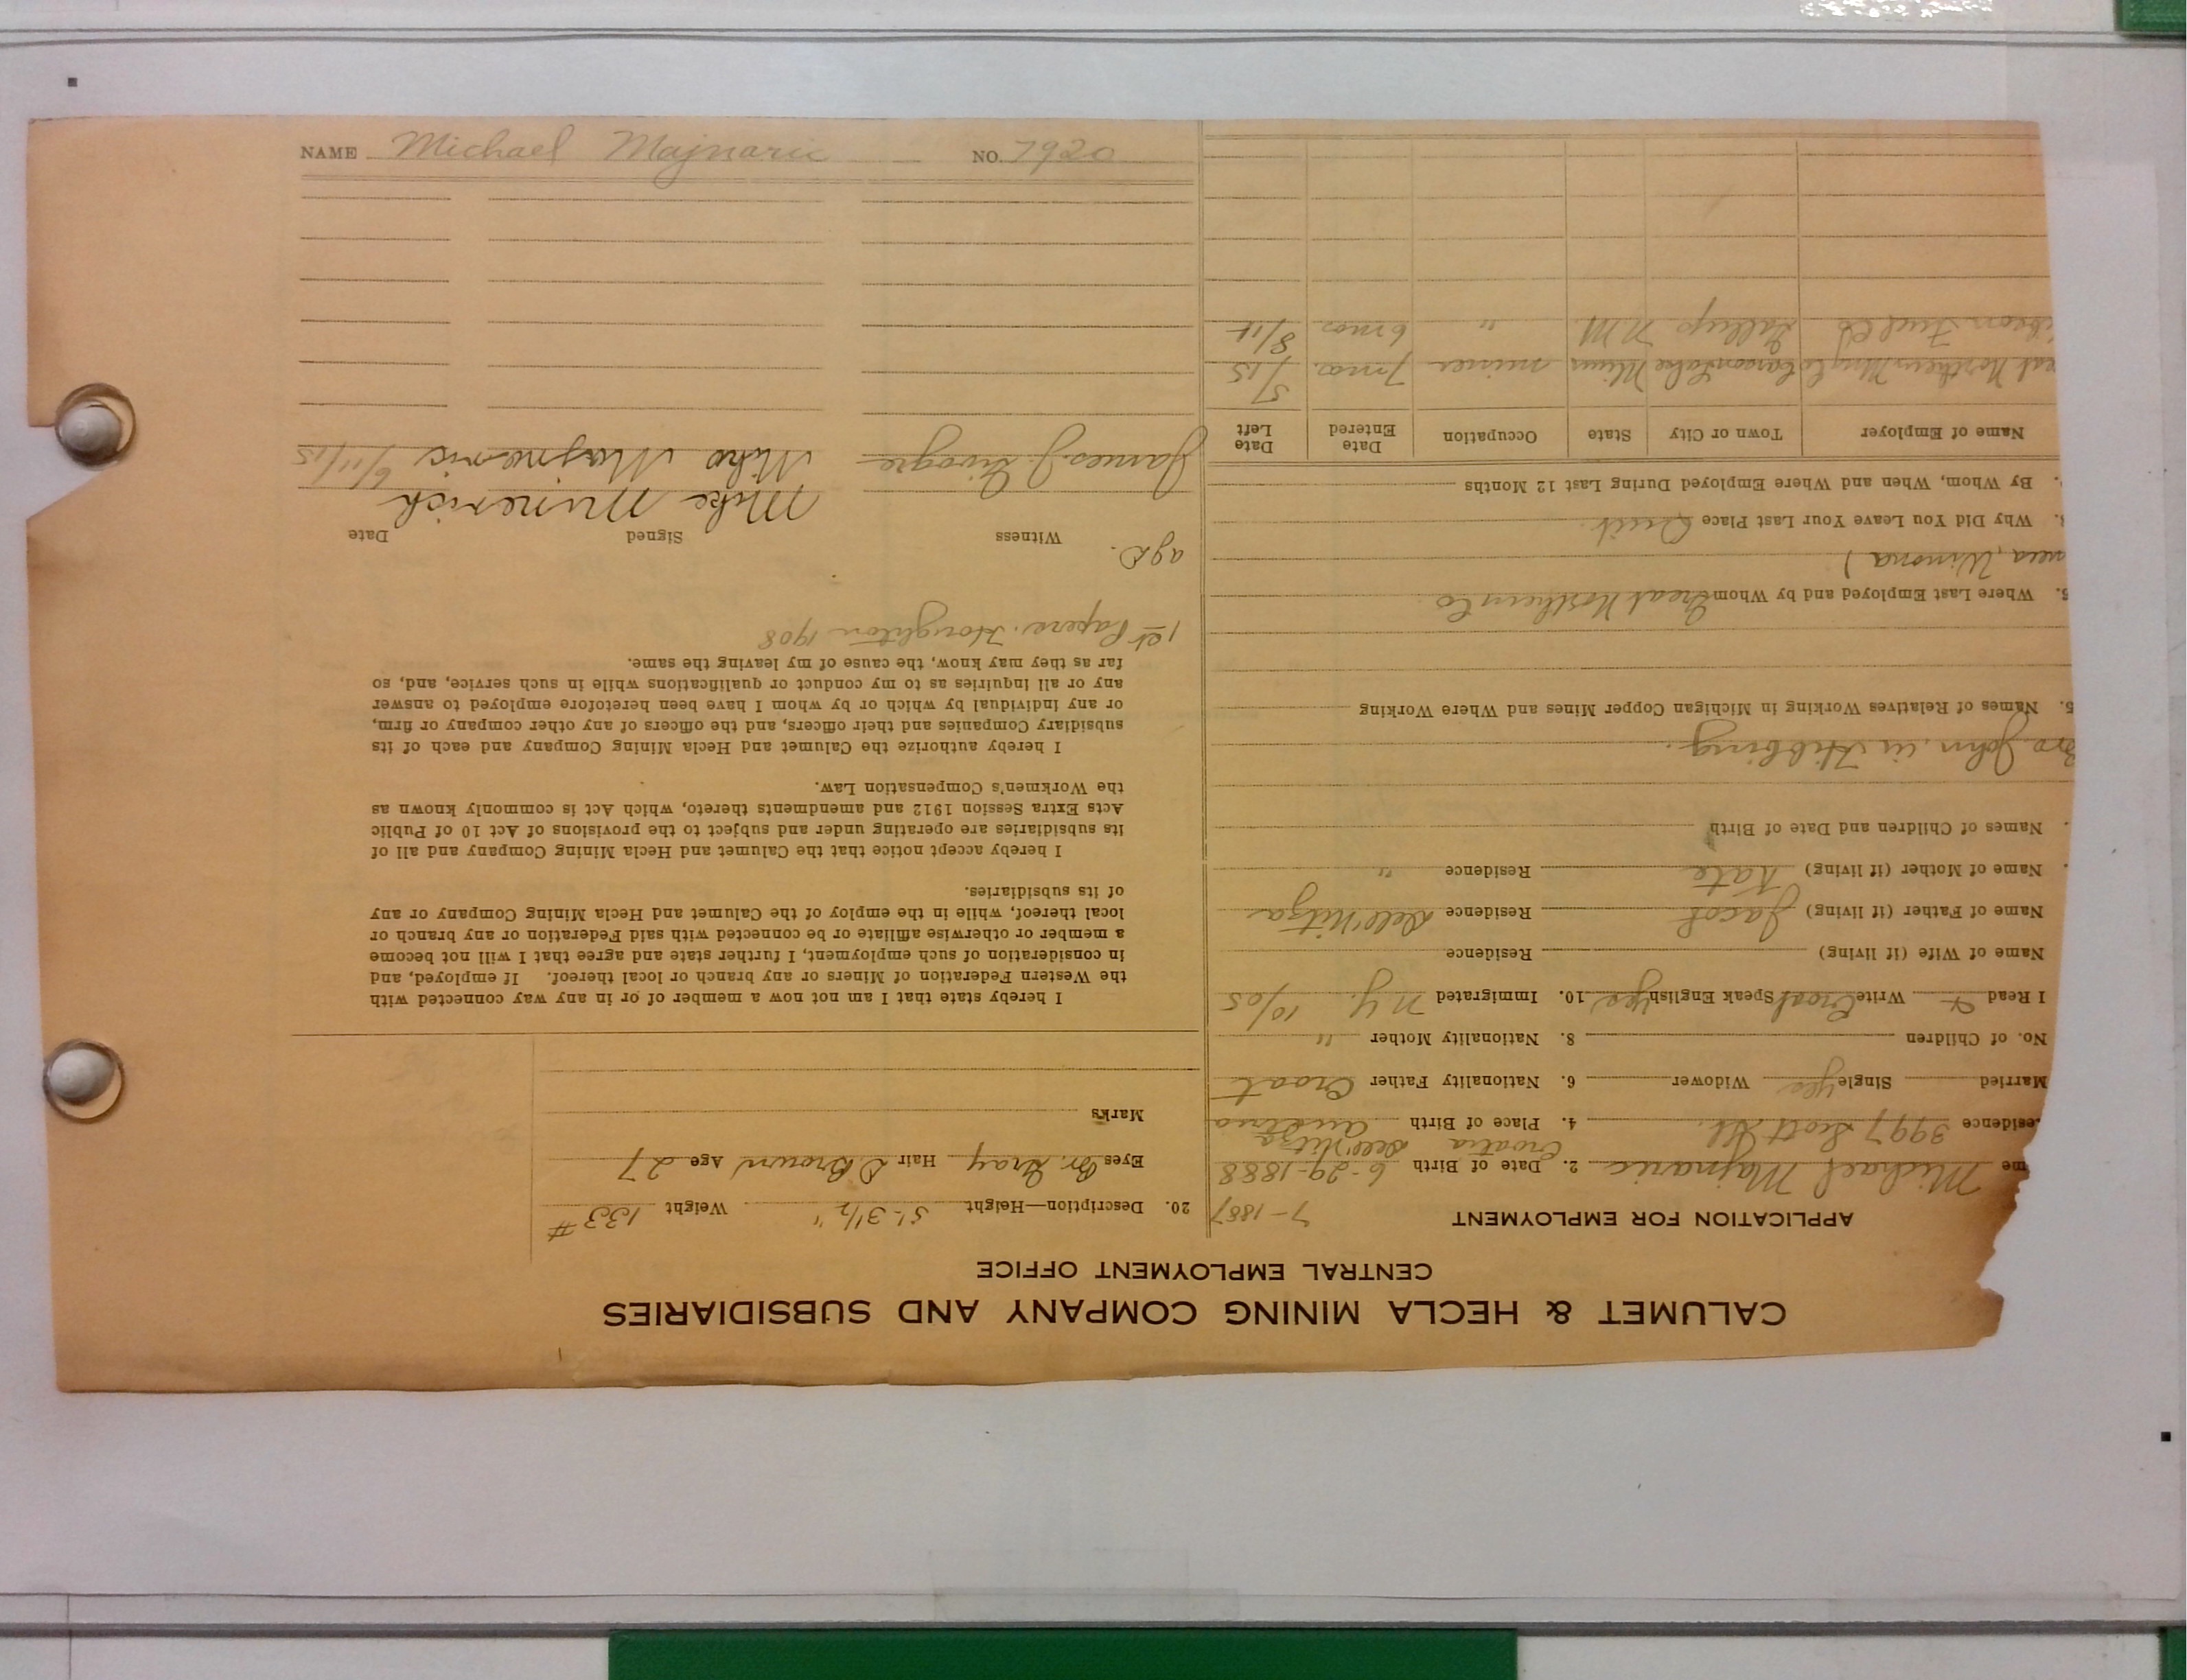 NAME Michael Majnaric NO. 7920
CALUMET & HECLA MINING COMPANY AND SUBSIDIARIES
CENTRAL EMPLOYMENT OFFICE
APPLICATION FOR EMPLOYMENT 7-1887
me Michael Majnaric 2. Date of Birth 6-29-1888
Croatia
esidence 3997 Scott St. 4. Place of Birth Austria
Married Single yes Widower 6. Nationality Father Croat
No. of Children 8. Nationality Mother "
I Read & Write Croat Speak English yes 10. Immigrated N.Y. 10/05
Name of Wife (if living) Residence
Name of Father (if living) Jacob Residence
Name of Mother (if living) Kate Residence "
Names of Children and Date of Birth
Bro John in Hibbing.
5. Names of Relatives Working in Michigan Copper Mines and Where Working
6. Where Last Employed and by Whom Great Northern Co
Winona)
Why Did You Leave Your Last Place Quit.
By Whom, When and Where Employed During Last 12 Months
Name of Employer Town or City State Occupation Date Entered Date Left
eat Northern Mng Co Carson Lake Minn miner 7 mos. 5/15
Fuel Co Gallup N M " 6 mos 8/14
20. Description—Height 5'-3½" Weight 133#
Eyes Br. Gray Hair D. Brown Age 27
Marks
I hereby state that I am not now a member of or in any way connected with
the Western Federation of Miners or any branch or local thereof. If employed, and
in consideration of such employment, I further state and agree that I will not become
a member or otherwise affiliate or be connected with said Federation or any branch or
local thereof, while in the employ of the Calumet and Hecla Mining Company or any
of its subsidiaries.
I hereby accept notice that the Calumet and Hecla Mining Company and all of
its subsidiaries are operating under and subject to the provisions of Act 10 of Public
Acts Extra Session 1912 and amendments thereto, which Act is commonly known as
the Workmen's Compensation Law.
I hereby authorize the Calumet and Hecla Mining Company and each of its
subsidiary Companies and their officers, and the officers of any other company or firm,
or any individual by which or by whom I have been heretofore employed to answer
any or all inquiries as to my conduct or qualifications while in such service, and, so
far as they may know, the cause of my leaving the same.
1st Papers. Houghton 1908
Witness Signed Date
Mike Minerich
James J. Miko Majnaric 6/11/15